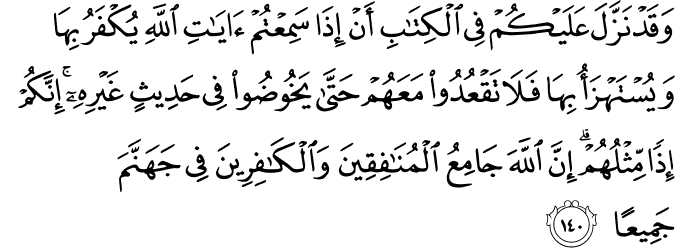 وَقَدْ نَزَّلَ عَلَيْكُمْ فِى ٱلْكِتَٰبِ أَنْ إِذَا سَمِعْتُمْ ءَايَٰتِ ٱللَّهِ يُكْفَرُ بِهَا
وَيُسْتَهْزَأُ بِهَا فَلَا تَقْعُدُوا۟ مَعَهُمْ حَتَّىٰ يَخُوضُوا۟ فِى حَدِيثٍ غَيْرِهِۦٓ ۚ إِنَّكُمْ
إِذًا مِّثْلُهُمْ ۗ إِنَّ ٱللَّهَ جَامِعُ ٱلْمُنَٰفِقِينَ وَٱلْكَٰفِرِينَ فِى جَهَنَّمَ
جَمِيعًا ١٤٠